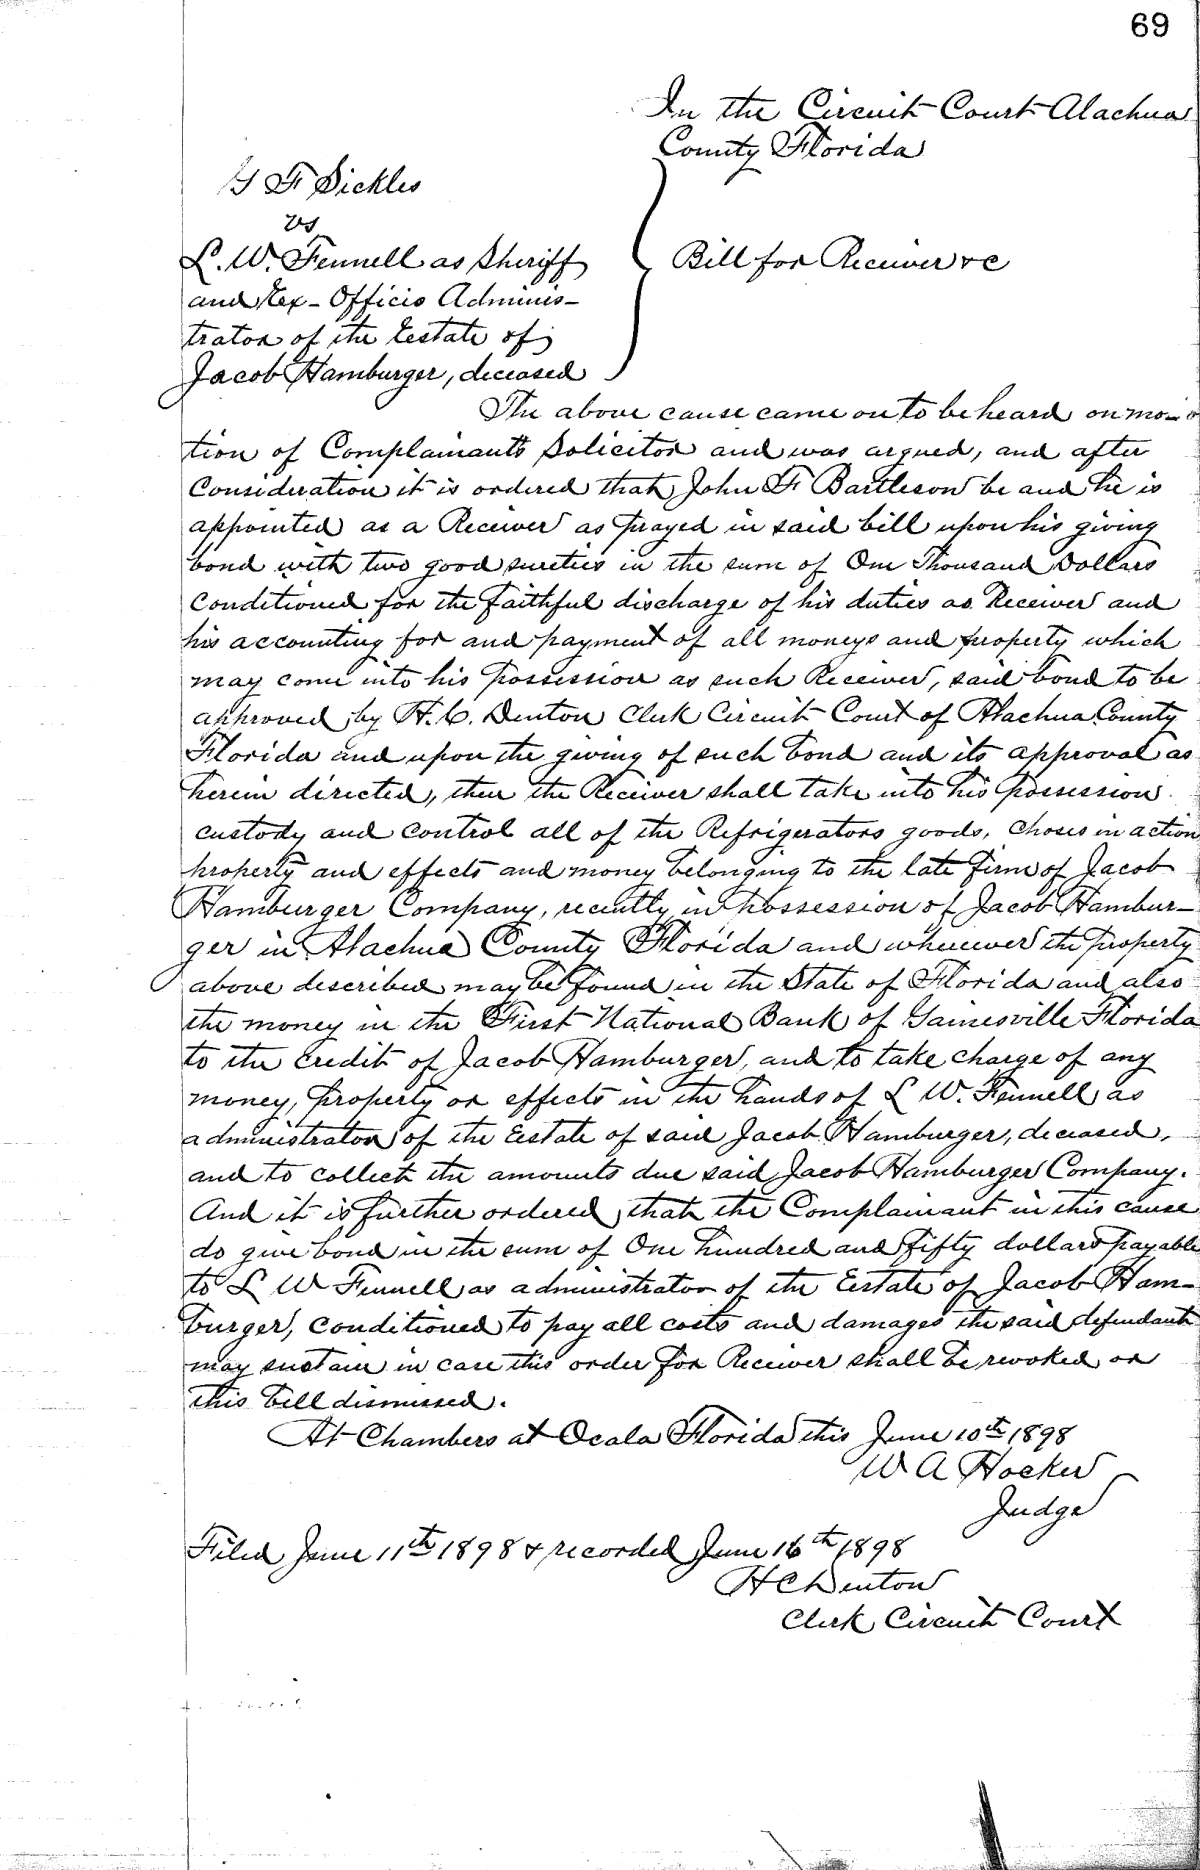 69
In the Circuit Court Alachua
County Florida
G F Sickles
vs
L. W. Fennell as Sheriff
and Ex-Officio Adminis-
trator of the Estate of
Jacob Hamburger, deceased
Bill for Receiver &c
The above cause came on to be heard on mo-
tion of Complainants Solicitor and was argued, and after
Consideration it is ordered that John F Bartleson be and he is
appointed as a Receiver as prayed in said bill upon his giving
bond with two good sureties in the sum of One Thousand Dollars
Conditioned for the faithful discharge of his duties as Receiver and
his accounting for and payment of all moneys and property which
may come into his possession as such Receiver, said bond to be
approved by H. C. Denton Clerk Circuit Court of Alachua County
Florida and upon the giving of such bond and its approval as
herein directed, then the Receiver shall take into his possession
custody and control all of the Refrigerators goods, choses in action
property and effects and money belonging to the late firm of Jacob
Hamburger Company, recently in possession of Jacob Hambur-
ger in Alachua County Florida and wherever the property
above described may be found in the State of Florida and also
the money in the First National Bank of Gainesville Florida
to the credit of Jacob Hamburger, and to take charge of any
money, property or effects in the hands of L W. Fennell as
administrator of the Estate of said Jacob Hamburger, deceased,
and to collect the amounts due said Jacob Hamburger Company.
And it is further ordered that the Complainant in this cause
do give bond in the sum of One hundred and fifty dollars payable
to L W Fennell as administrator of the Estate of Jacob Ham-
burger, conditioned to pay all costs and damages the said defendant
may sustain in case this order for Receiver shall be revoked or
this bill dismissed.
At Chambers at Ocala Florida this June 10th 1898
W A Hocker
Judge
Filed June 11th 1898 & recorded June 16th 1898
H C Denton
Clerk Circuit Court